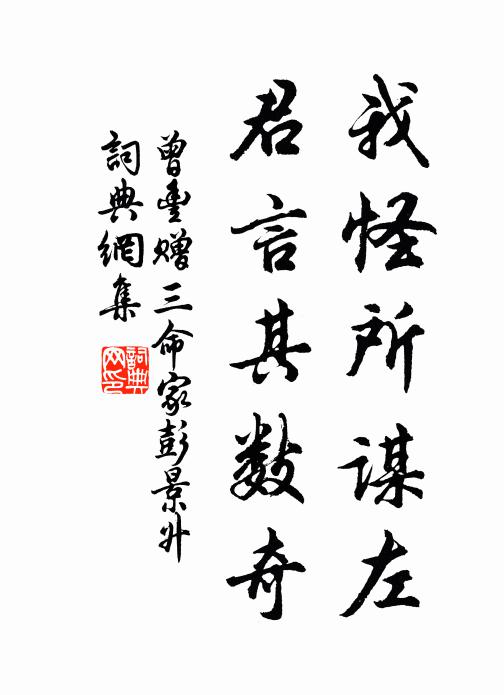 我怪所谋左
君言其数奇
曾豊赠三命家彭景升
詞典網集
詞典网印